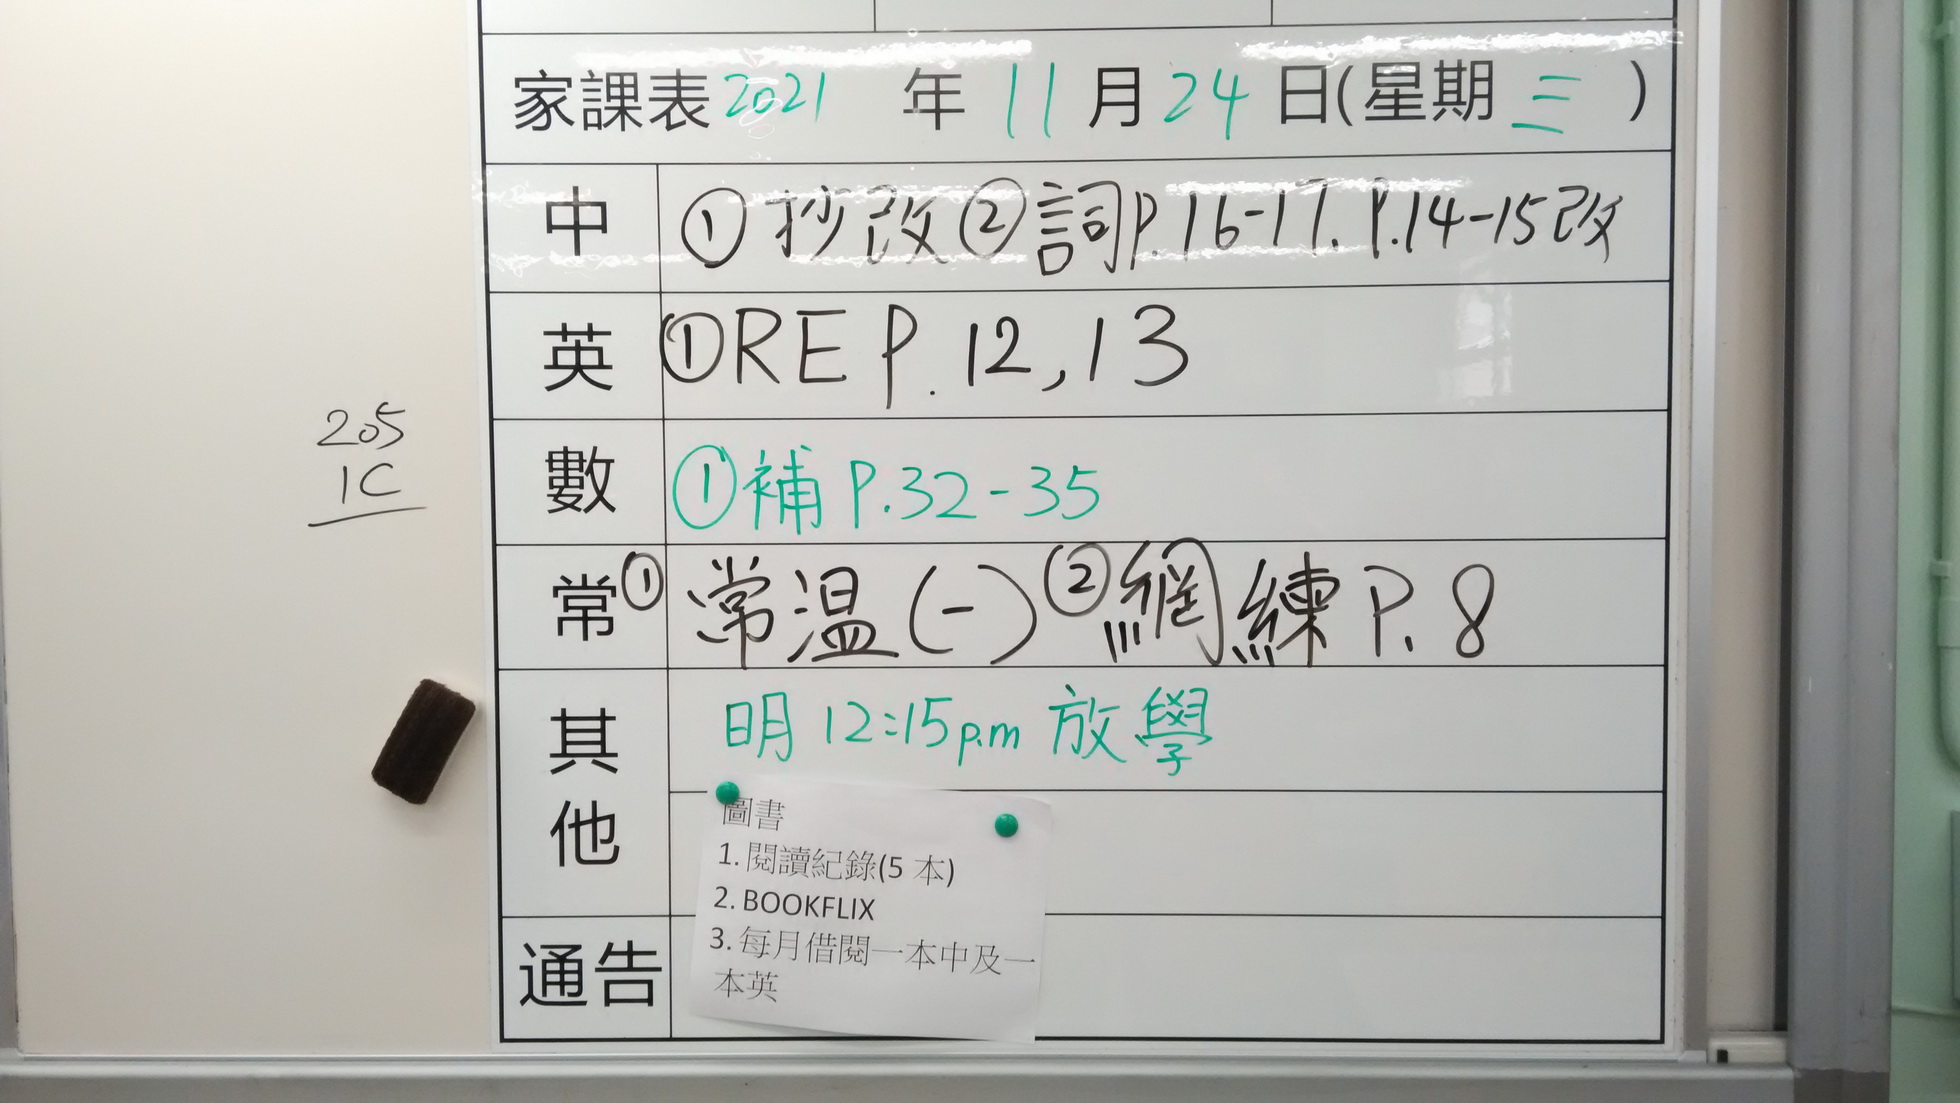 家課表 2021 年 11 月 24 日(星期 三 )
中 ① 抄改 ② 詞 P.16-17. P.14-15改
英 ① RE P. 12,13
205
1C
數 ① 補 P.32-35
常 ① 常溫(一) ② 網練 P.8
其他 明 12:15p.m 放學
圖書
1. 閱讀紀錄(5 本)
2. BOOKFLIX
3. 每月借閱一本中及一
本英
通告